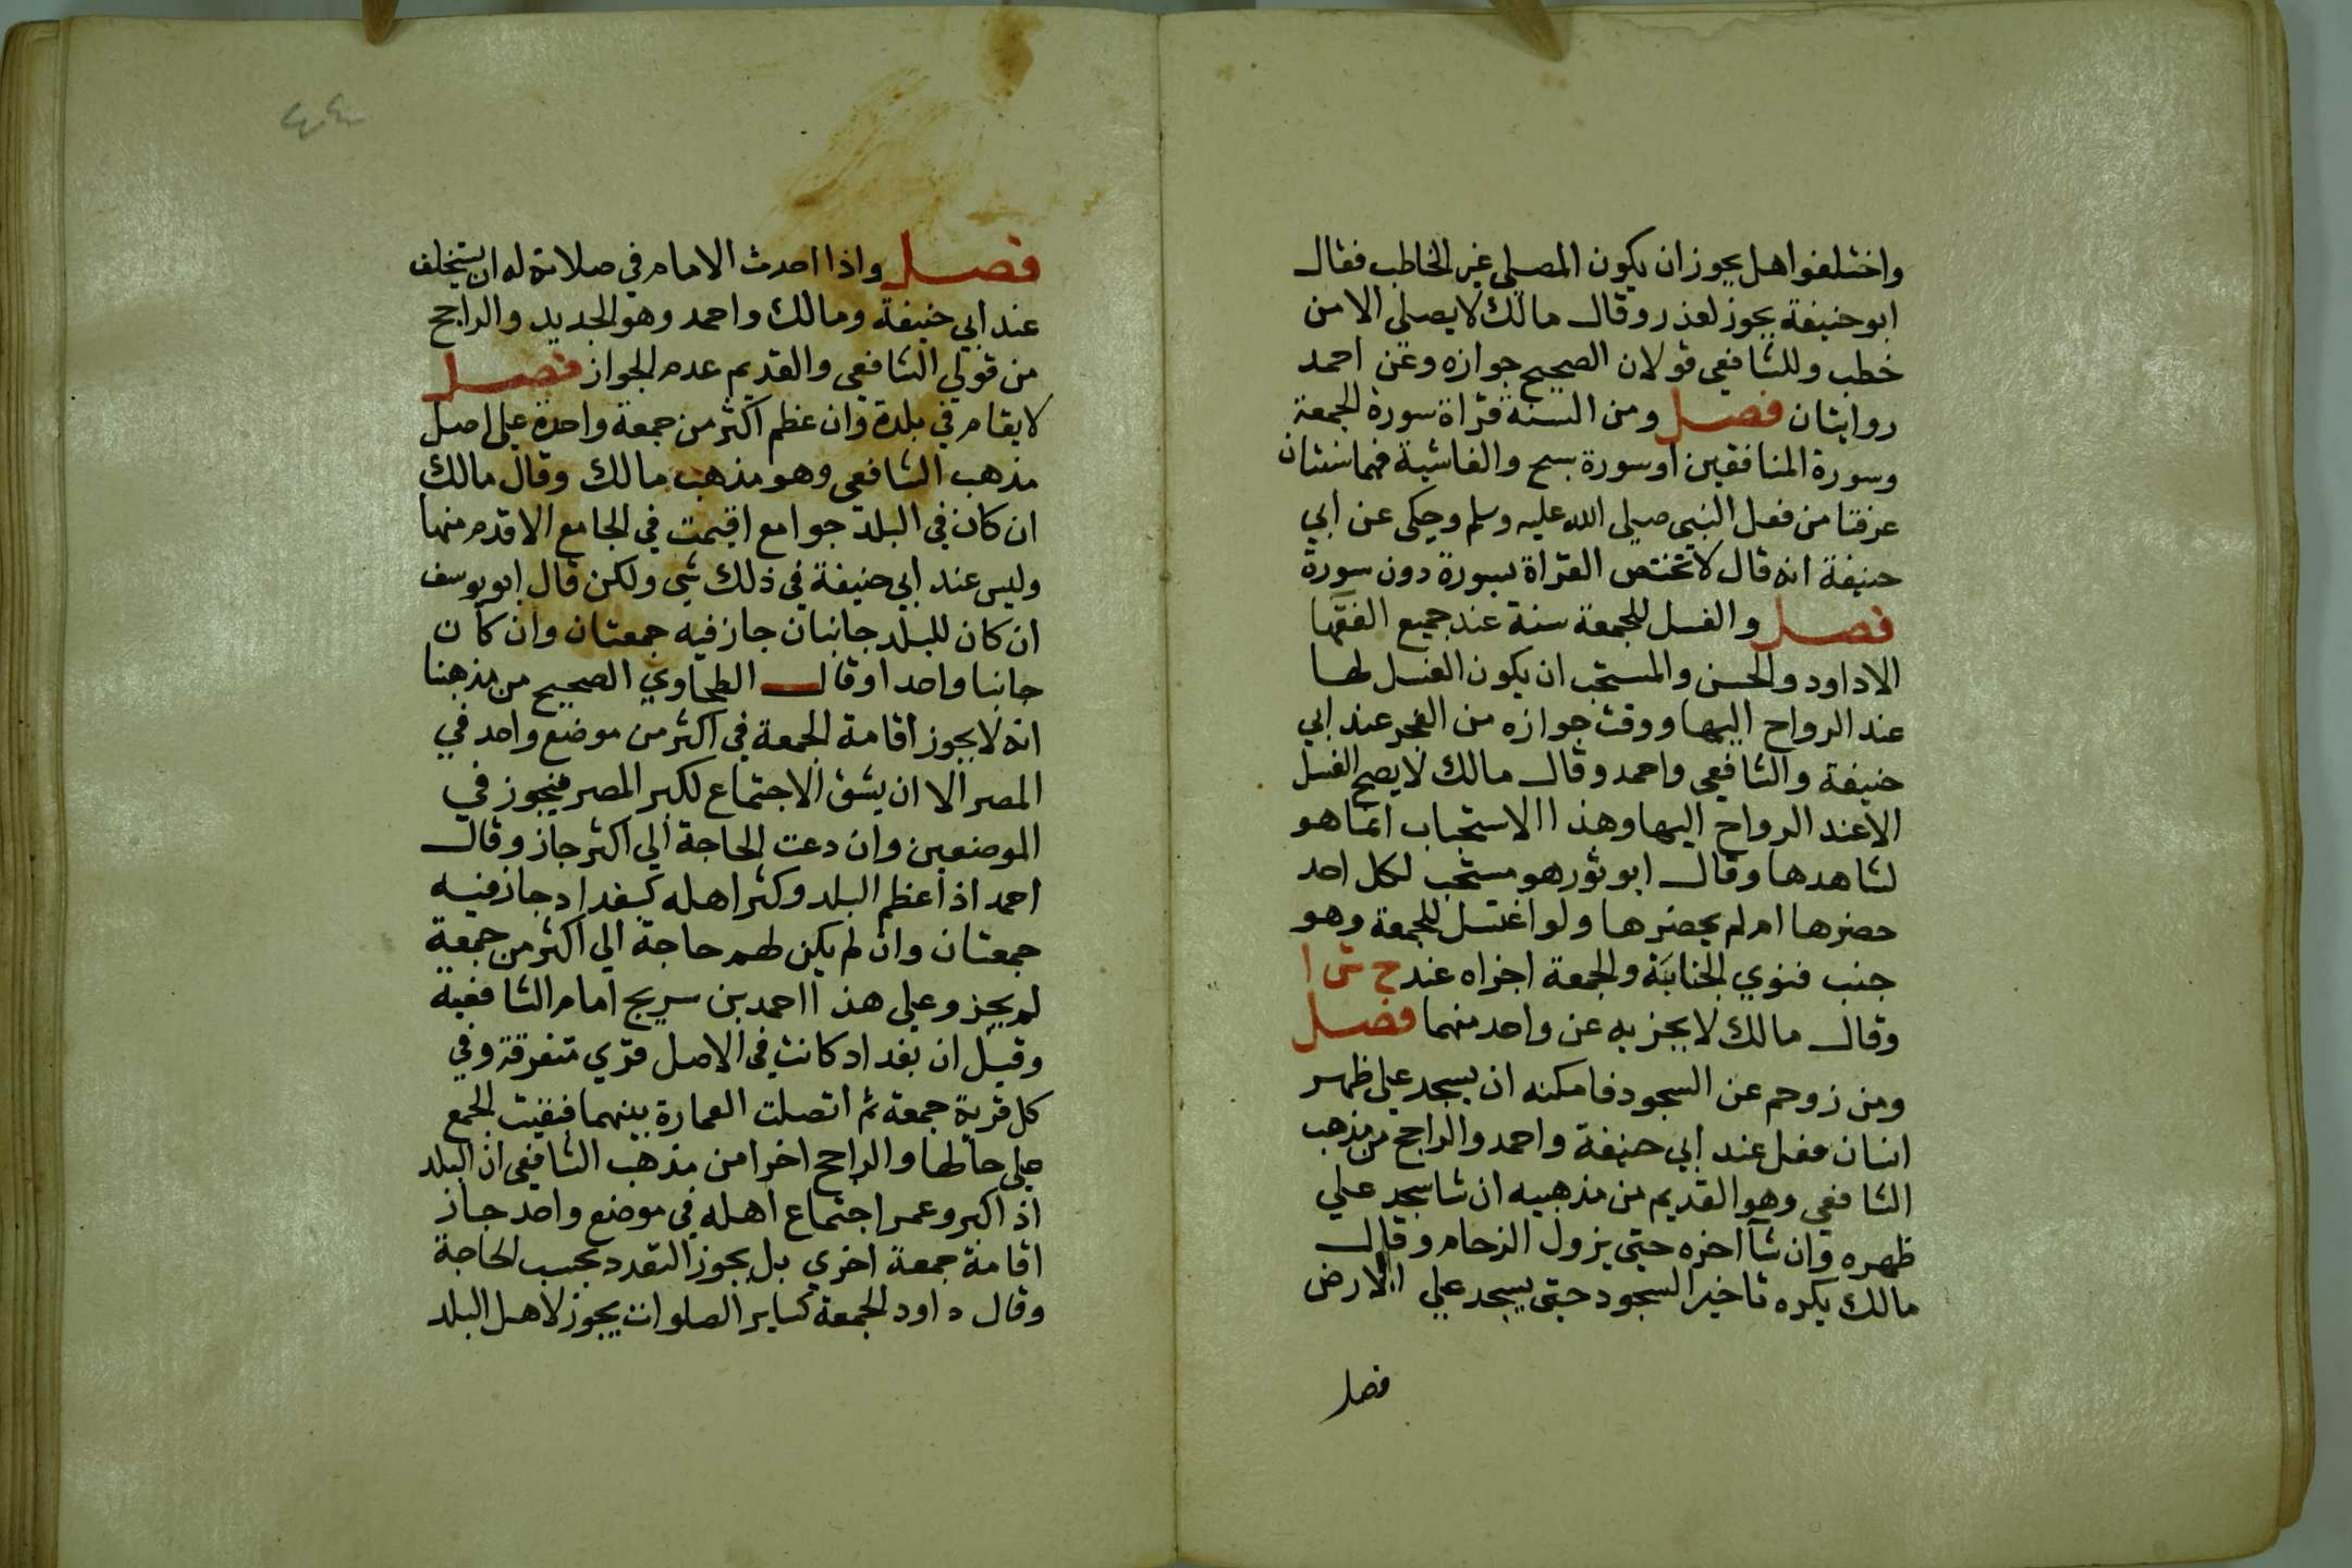 واختلفوا هل يجوز ان يكون المصلي غير الخاطب فقال
ابو حنيفة يجوز لعذر وقال مالك لا يصلي الا من
خطب وللشافعي قولان الصحيح جوازه وعن احمد
روايتان فصل ومن السنة قراة سورة الجمعة
وسورة المنافقين او سورة سبح والغاشية فهما سنتان
عرفتا من فعل النبي صلى الله عليه وسلم وحكى عن ابي
حنيفة انه قال لا تختص القراة بسورة دون سورة
فصل والغسل للجمعة سنة عند جميع الفقها
الا داود والحسن والمستحب ان يكون الغسل لها
عند الرواح اليها ووقت جوازه من الفجر عند ابي
حنيفة والشافعي واحمد وقال مالك لا يصح الغسل
الا عند الرواح اليها وهذا الاستحباب انما هو
لشاهدها وقال ابو ثور هو مستحب لكل احد
حضرها ام لم يحضرها ولو اغتسل للجمعة وهو
جنب فنوي الجنابة والجمعة اجزاه عند ح ش ا
وقال مالك لا يجزيه عن واحد منهما فصل
ومن زوحم عن السجود فامكنه ان يسجد علي ظهر
انسان فعل عند ابي حنيفة واحمد والراجح من مذهب
الشافعي وهو القديم من مذهبيه ان شا سجد علي
ظهره وان شآ اخره حتى يزول الزحام وقال
مالك يكره تاخير السجود حتى يسجد علي الارض
فصل
٤٤
فصل واذا احدث الامام في صلاته له ان يستخلف
عند ابي حنيفة ومالك واحمد وهو الجديد والراجح
من قولي الشافعي والقديم عدم الجواز فصل
لا يقام في بلدة وان عظم اكثر من جمعة واحدة علي اصل
مذهب الشافعي وهو مذهب مالك وقال مالك
ان كان في البلد جوامع اقيمت في الجامع الاقدم منها
وليس عند ابي حنيفة في ذلك شي ولكن قال ابو يوسف
ان كان للبلد جانبان جاز فيه جمعتان وان كان
جانبا واحدا وقال الطحاوي الصحيح من مذهبنا
انه لا يجوز اقامة الجمعة في اكثر من موضع واحد في
المصر الا ان يشق الاجتماع لكبر المصر فيجوز في
الموضعين وان دعت الحاجة الي اكثر جاز وقال
احمد اذا عظم البلد وكثر اهله كبغداد جاز فيه
جمعتان وان لم يكن لهم حاجة الي اكثر من جمعة
لم يجز وعلي هذا احمد بن سريج امام الشافعية
وقيل ان بغداد كانت في الاصل قري متفرقة وفي
كل قرية جمعة ثم اتصلت العمارة بينهما فبقيت الجمع
علي حالها والراجح اخرا من مذهب الشافعي ان البلد
اذا كبر وعسر اجتماع اهله في موضع واحد جاز
اقامة جمعة اخري بل يجوز التعدد بحسب الحاجة
وقال داود الجمعة كساير الصلوات يجوز لاهل البلد